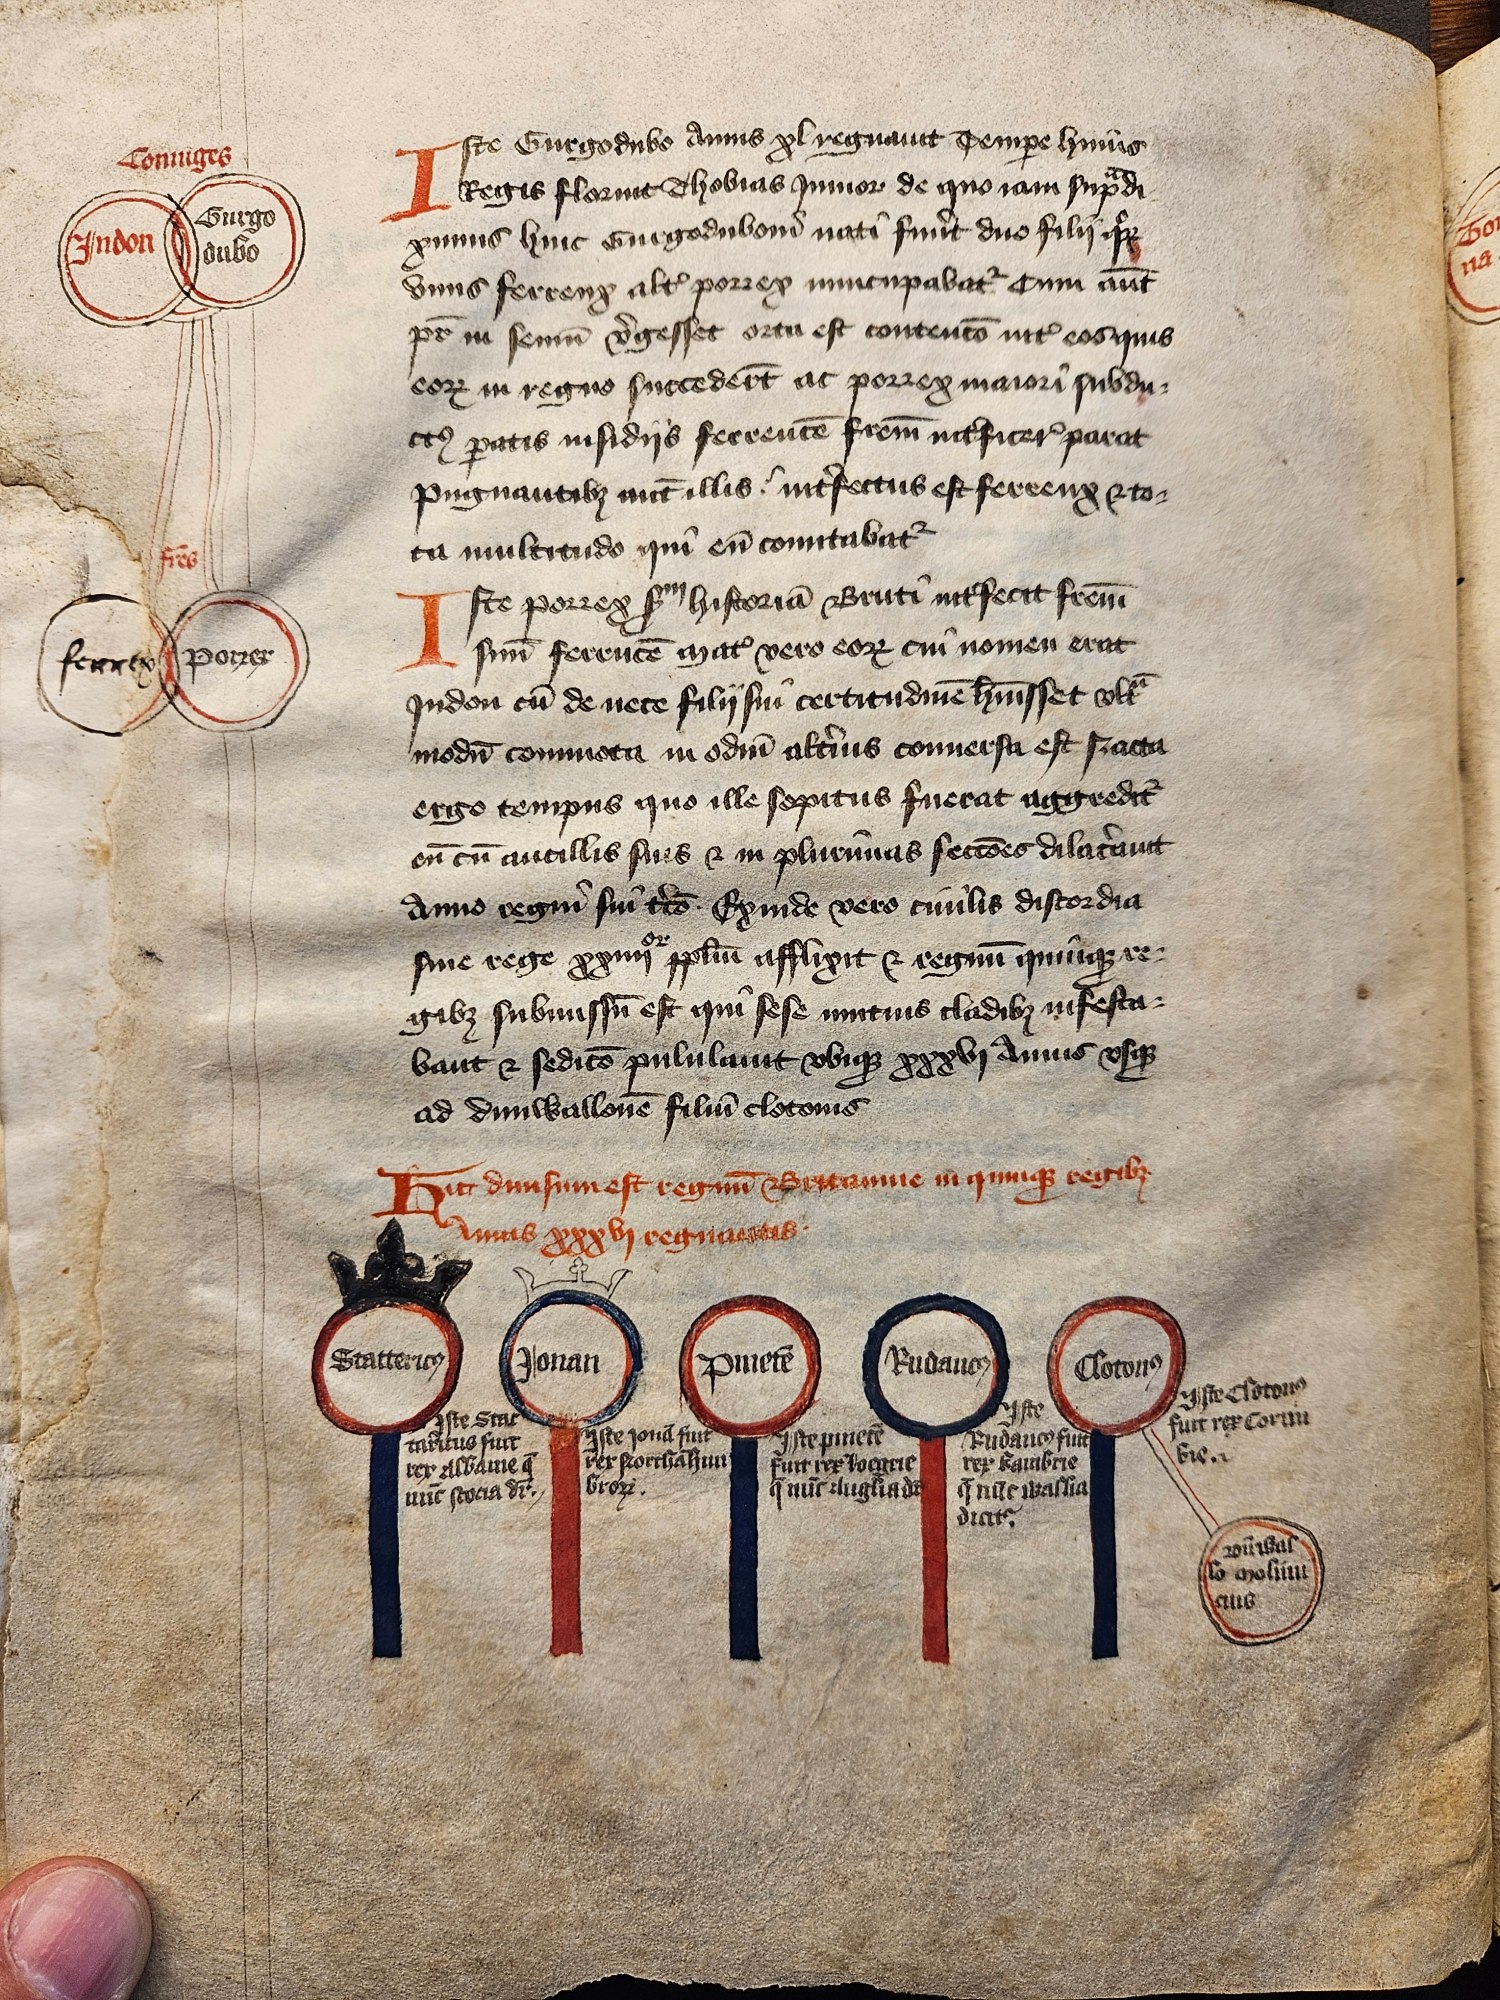 Coniuges
Indon
Gurgo
dubo
Iste Gurgodubo Annis xl regnauit Tempe huius
Regis floruit Thobias Iunior de quo iam supadi
ximus huic Gurgoduboni nati funt duo filij qr
vnus ferrenx alt porrex nuncupabat Cum aut
pr in seniu vgesset orta est contenco int eos quis
eor in regno succedert ac porrex maiori subdu-
ct patis insidijs ferrente frem intficer parat
pugnantib aut illis intfectus est ferrenx & to-
ta multitudo qui eu comitabat
fres
ferrex
Porrex
Iste porrex sm historia Bruti intfecit frem
suu ferrute mat vero eor cui nomen erat
Indon cu de nece filij sui certitudine huisset vlta
modu commota in odiu altius conuersa est Nacta
ergo tempus quo ille sopitus fuerat aggredit
eu cu ancillis suis & in plurimas secces dilacauit
Anno regni sui tcio. Exinde vero ciuilis discordia
sine rege xxiiiior pplm afflixit & regnu quinque re-
gib submissu est qui sese mutuis cladib infesta-
bant & sedico pululauit vbique xxxvi Annis vsque
ad dunwallone filiu clotonis
Hic diuisum est regnu Britannie in quinque regib
Annis xxxvi regnantis
Statterius
Jonan
Pinete
Rudauc
Clotonus
Iste Stat
tarius fuit
rex Albanie q
nuc scocia dr.
Iste Jona fuit
rex Northahim
bror.
Iste pinete
fuit rex loegrie
q nuc Anglia dr
Iste
Rudauc fuit
rex kambrie
q nuc wallia
dicit.
Iste Clotonus
fuit rex Cornu
bie.
Dunwal
lo moliun
cius